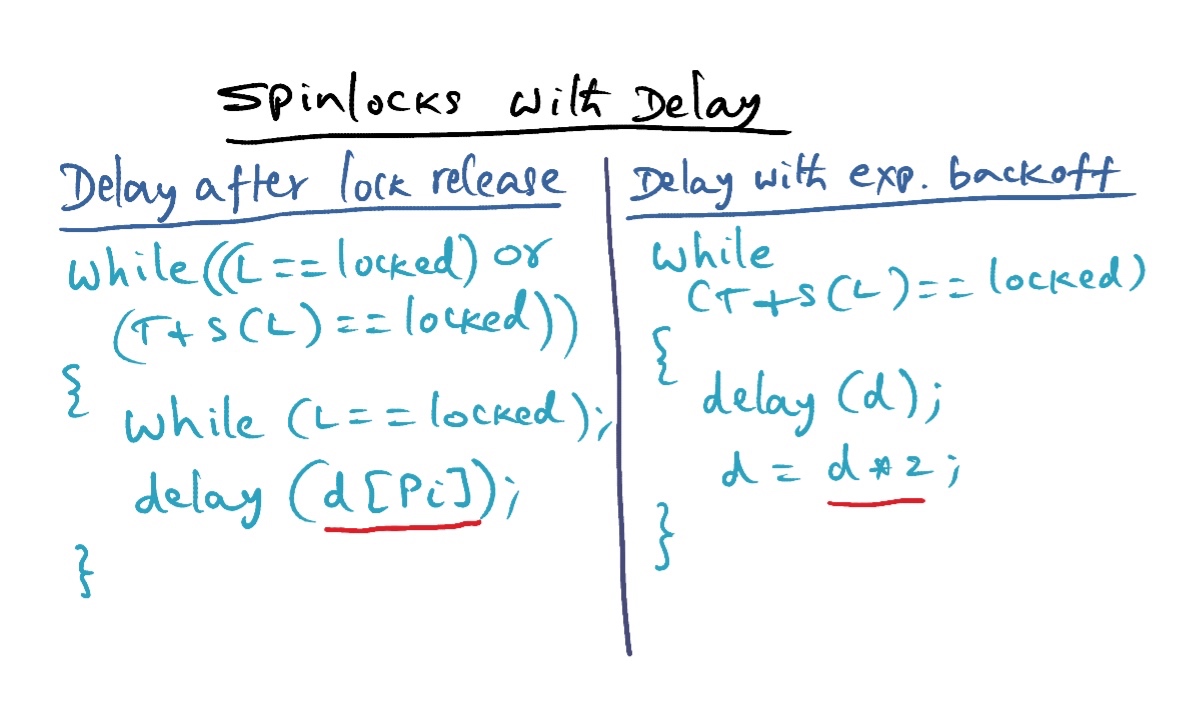 Spinlocks with Delay
Delay after lock release
while((L == locked) or
(T+S(L) == locked))
{
while (L == locked);
delay (d[Pi]);
}
Delay with exp. backoff
while
(T+S(L) == locked)
{
delay (d);
d = d*2;
}